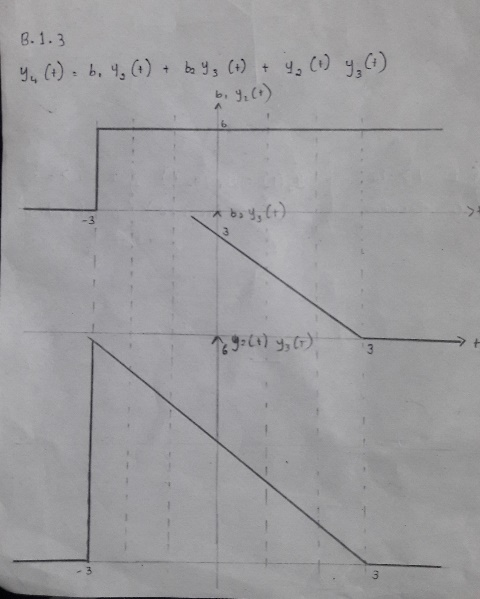 B.1.3
y₄(t) = b₁ y₂(t) + b₂ y₃(t) + y₂(t) y₃(t)
b₁ y₂(t)
6
-3
t
b₂ y₃(t)
3
3
t
6 y₂(t) y₃(t)
-3
3